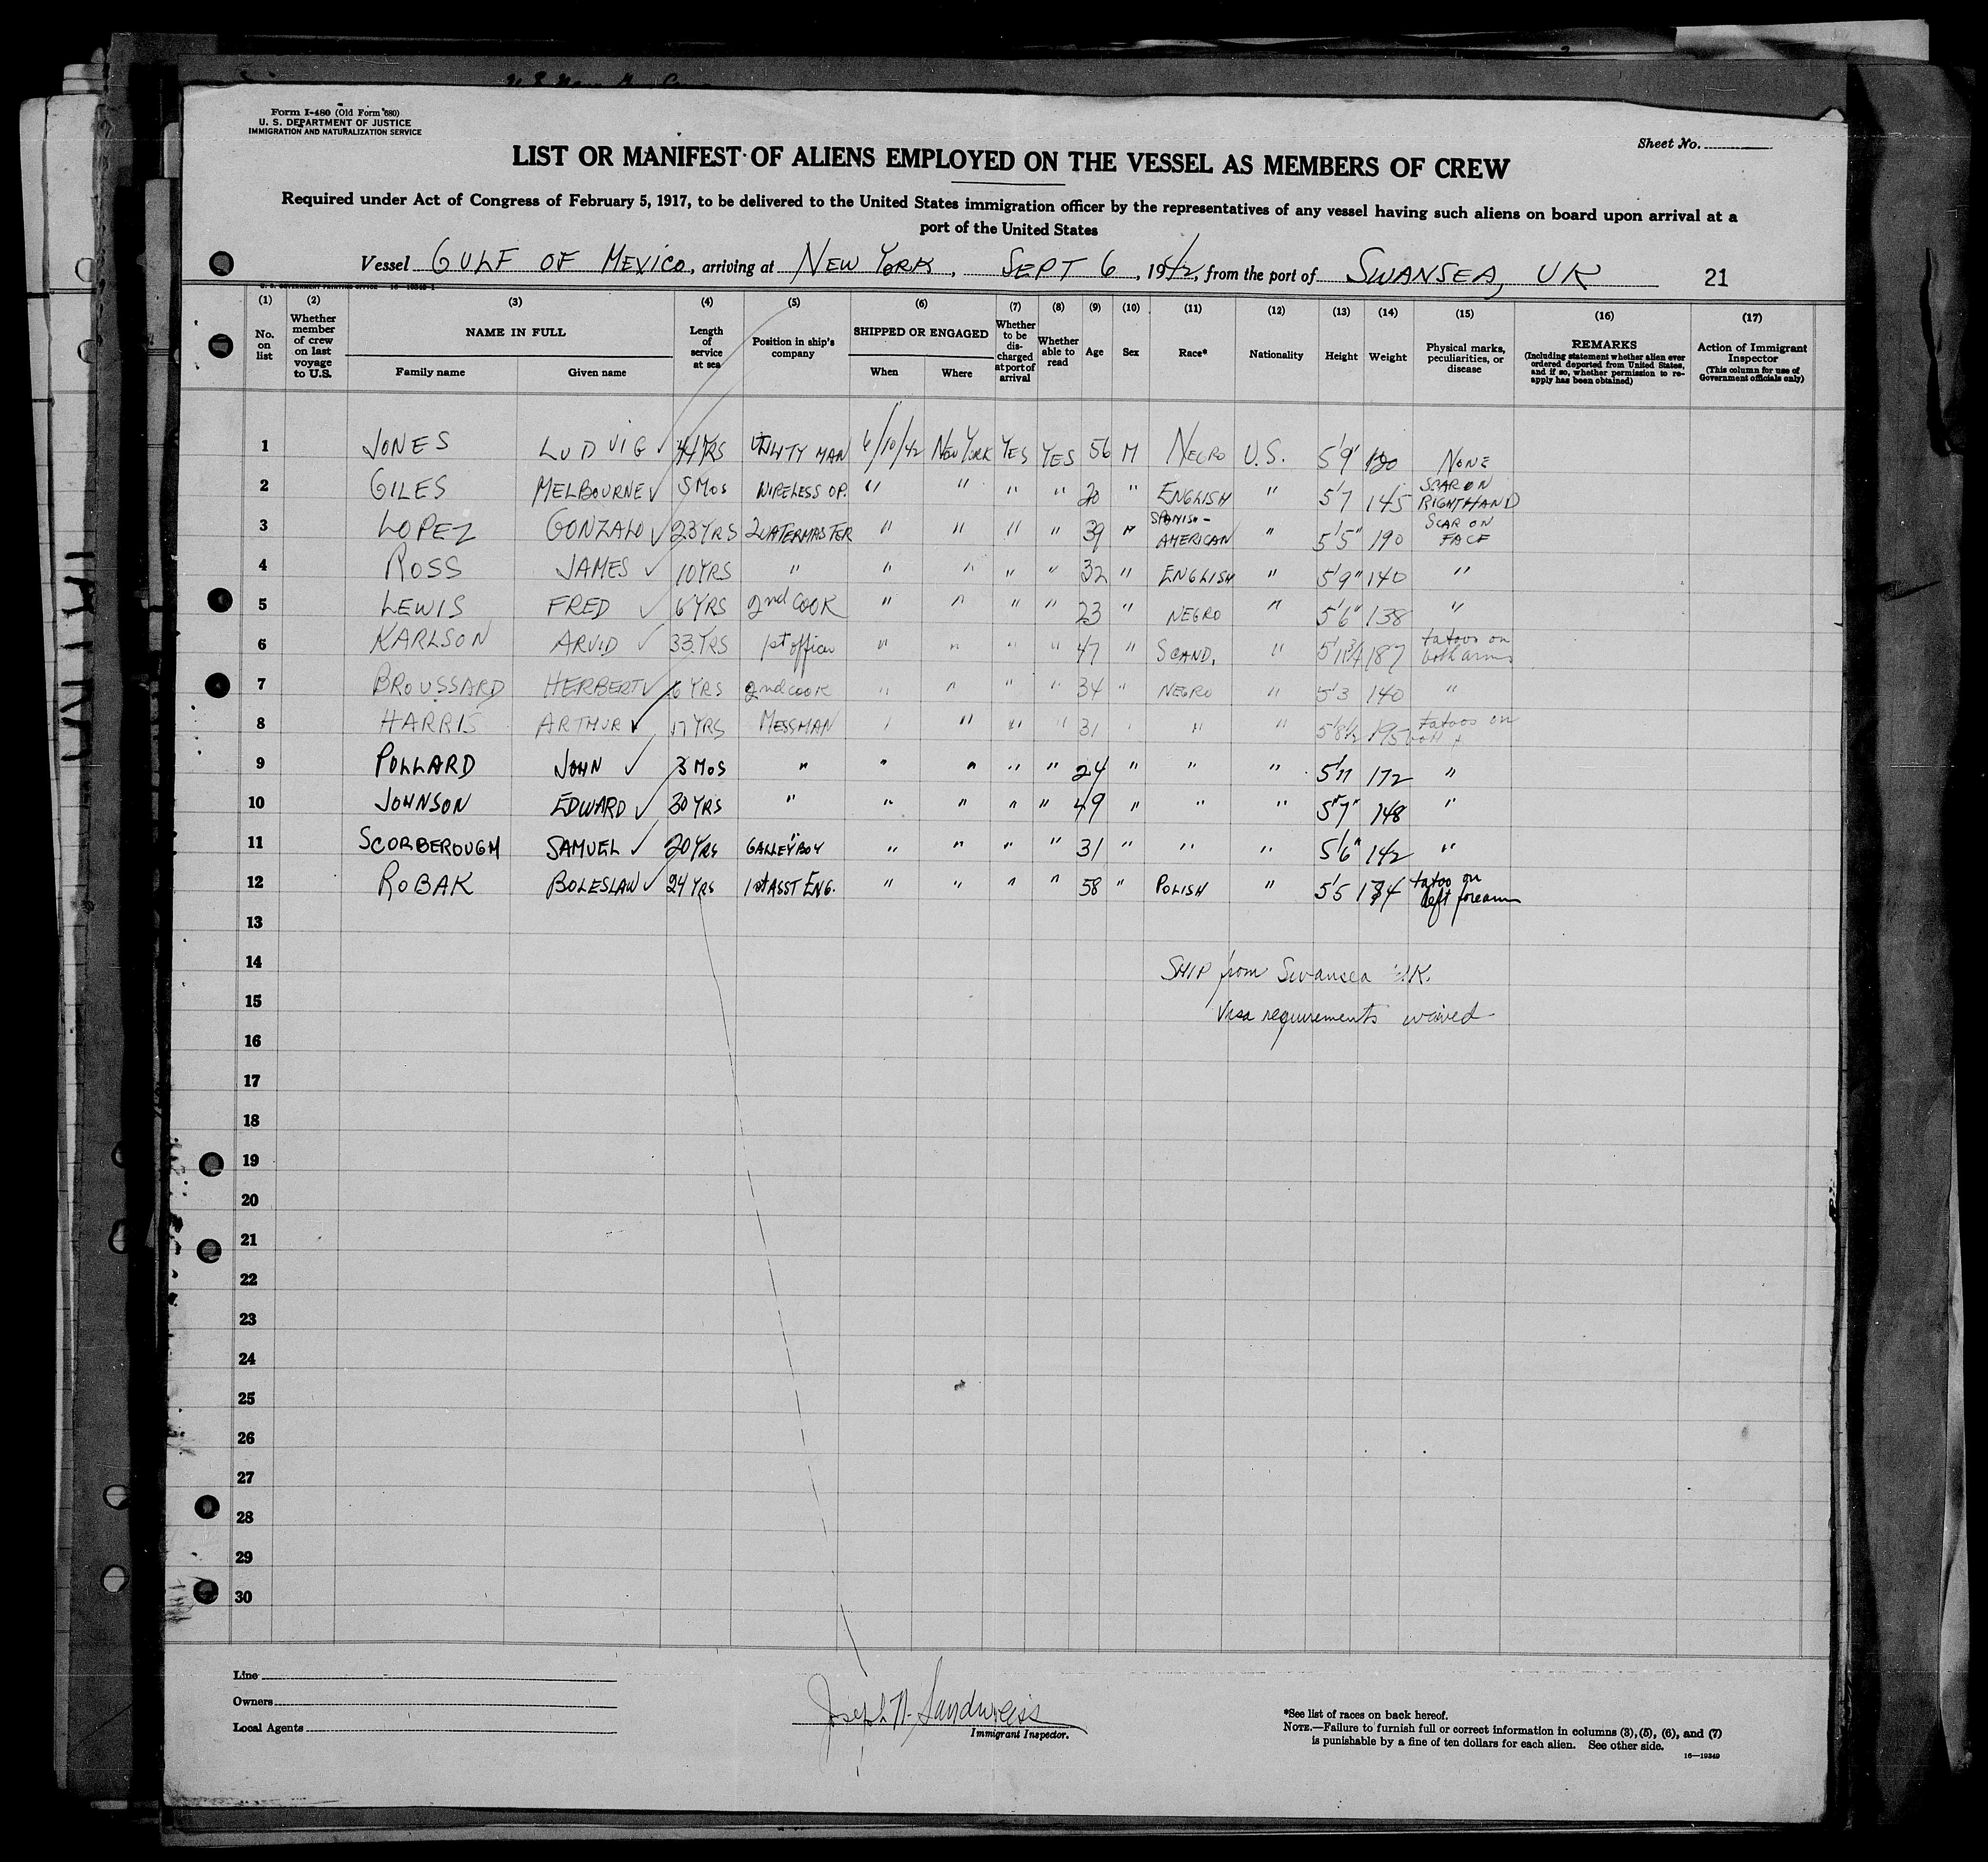 Form I-480 (Old Form 680)
U. S. DEPARTMENT OF JUSTICE
IMMIGRATION AND NATURALIZATION SERVICE
Sheet No.
LIST OR MANIFEST OF ALIENS EMPLOYED ON THE VESSEL AS MEMBERS OF CREW
Required under Act of Congress of February 5, 1917, to be delivered to the United States immigration officer by the representatives of any vessel having such aliens on board upon arrival at a
port of the United States
Vessel GULF OF MEXICO, arriving at NEW YORK, SEPT 6, 1942, from the port of SWANSEA, UK 21
(1) (2) (3) (4) (5) (6) (7) (8) (9) (10) (11) (12) (13) (14) (15) (16) (17)
No. on list
Whether member of crew on last voyage to U.S.
NAME IN FULL
Family name Given name
Length of service at sea
Position in ship's company
SHIPPED OR ENGAGED
When Where
Whether to be discharged at port of arrival
Whether able to read
Age
Sex
Race*
Nationality
Height
Weight
Physical marks, peculiarities, or disease
REMARKS
(Including statement whether alien ever ordered deported from United States, and if so, whether permission to re-apply has been obtained)
Action of Immigrant Inspector
(This column for use of Government officials only)
1 JONES LUDVIG ✓ YRS UTILITY MAN 6/10/42 NEW YORK YES YES 56 M NEGRO U.S. 5'9" NONE
2 GILES MELBOURNE ✓ 5 MOS WIRELESS OP. " " " " 20 " ENGLISH " 5'7 145 SCAR ON RIGHT HAND
3 LOPEZ GONZALO ✓ 23 YRS QUATERMASTER " " " " 39 " SPANISH-AMERICAN " 5'5" 190 SCAR ON FACE
4 ROSS JAMES ✓ 10 YRS " " " " " 32 " ENGLISH " 5'9" 140 "
5 LEWIS FRED ✓ 6 YRS 2nd COOK " " " " 23 " NEGRO " 5'6" 138 "
6 KARLSON ARVID ✓ 33 YRS 1st officer " " " " 47 " SCAND. " 5'11 3/4 187 tatoos on both arms
7 BROUSSARD HERBERT ✓ 6 YRS 2nd cook " " " " 34 " NEGRO " 5'3 140 "
8 HARRIS ARTHUR ✓ 17 YRS MESSMAN " " " " 31 " " " 5'8½ 195 tatoos on
9 POLLARD JOHN ✓ 3 MOS " " " " " 24 " " " 5'11 172 "
10 JOHNSON EDWARD ✓ 30 YRS " " " " " 49 " " " 5'7" 148 "
11 SCORBEROUGH SAMUEL ✓ 20 YRS GALLEYBOY " " " " 31 " " " 5'6" 142 "
12 ROBAK BOLESLAW ✓ 24 YRS 1st ASST ENG. " " " " 58 " POLISH " 5'5 tatoo on left forearm
13
14 SHIP from Swansea U.K.
15 Visa requirements waived
16
17
18
19
20
21
22
23
24
25
26
27
28
29
30
Line
Owners
Local Agents
Joseph N. Sandweiss
Immigrant Inspector.
*See list of races on back hereof.
NOTE.—Failure to furnish full or correct information in columns (3), (5), (6), and (7)
is punishable by a fine of ten dollars for each alien. See other side.
16—19349